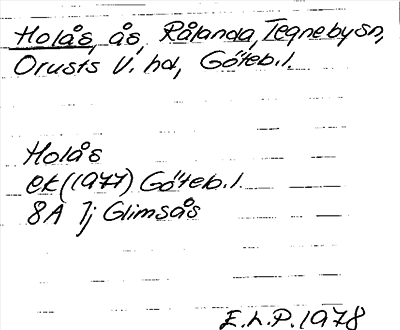 Holås, ås, Rålanda, Tegneby sn,
Orusts V. hd, Göteb. l.
Holås
ek (1977) Göteb. l.
8A 7j Glimsås
E.L.P. 1978